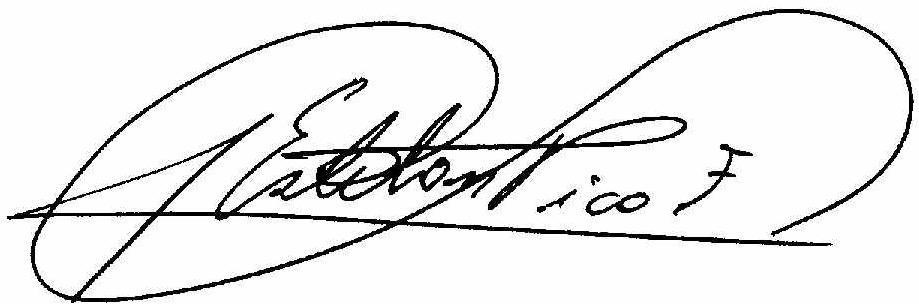 Esteban Pico F